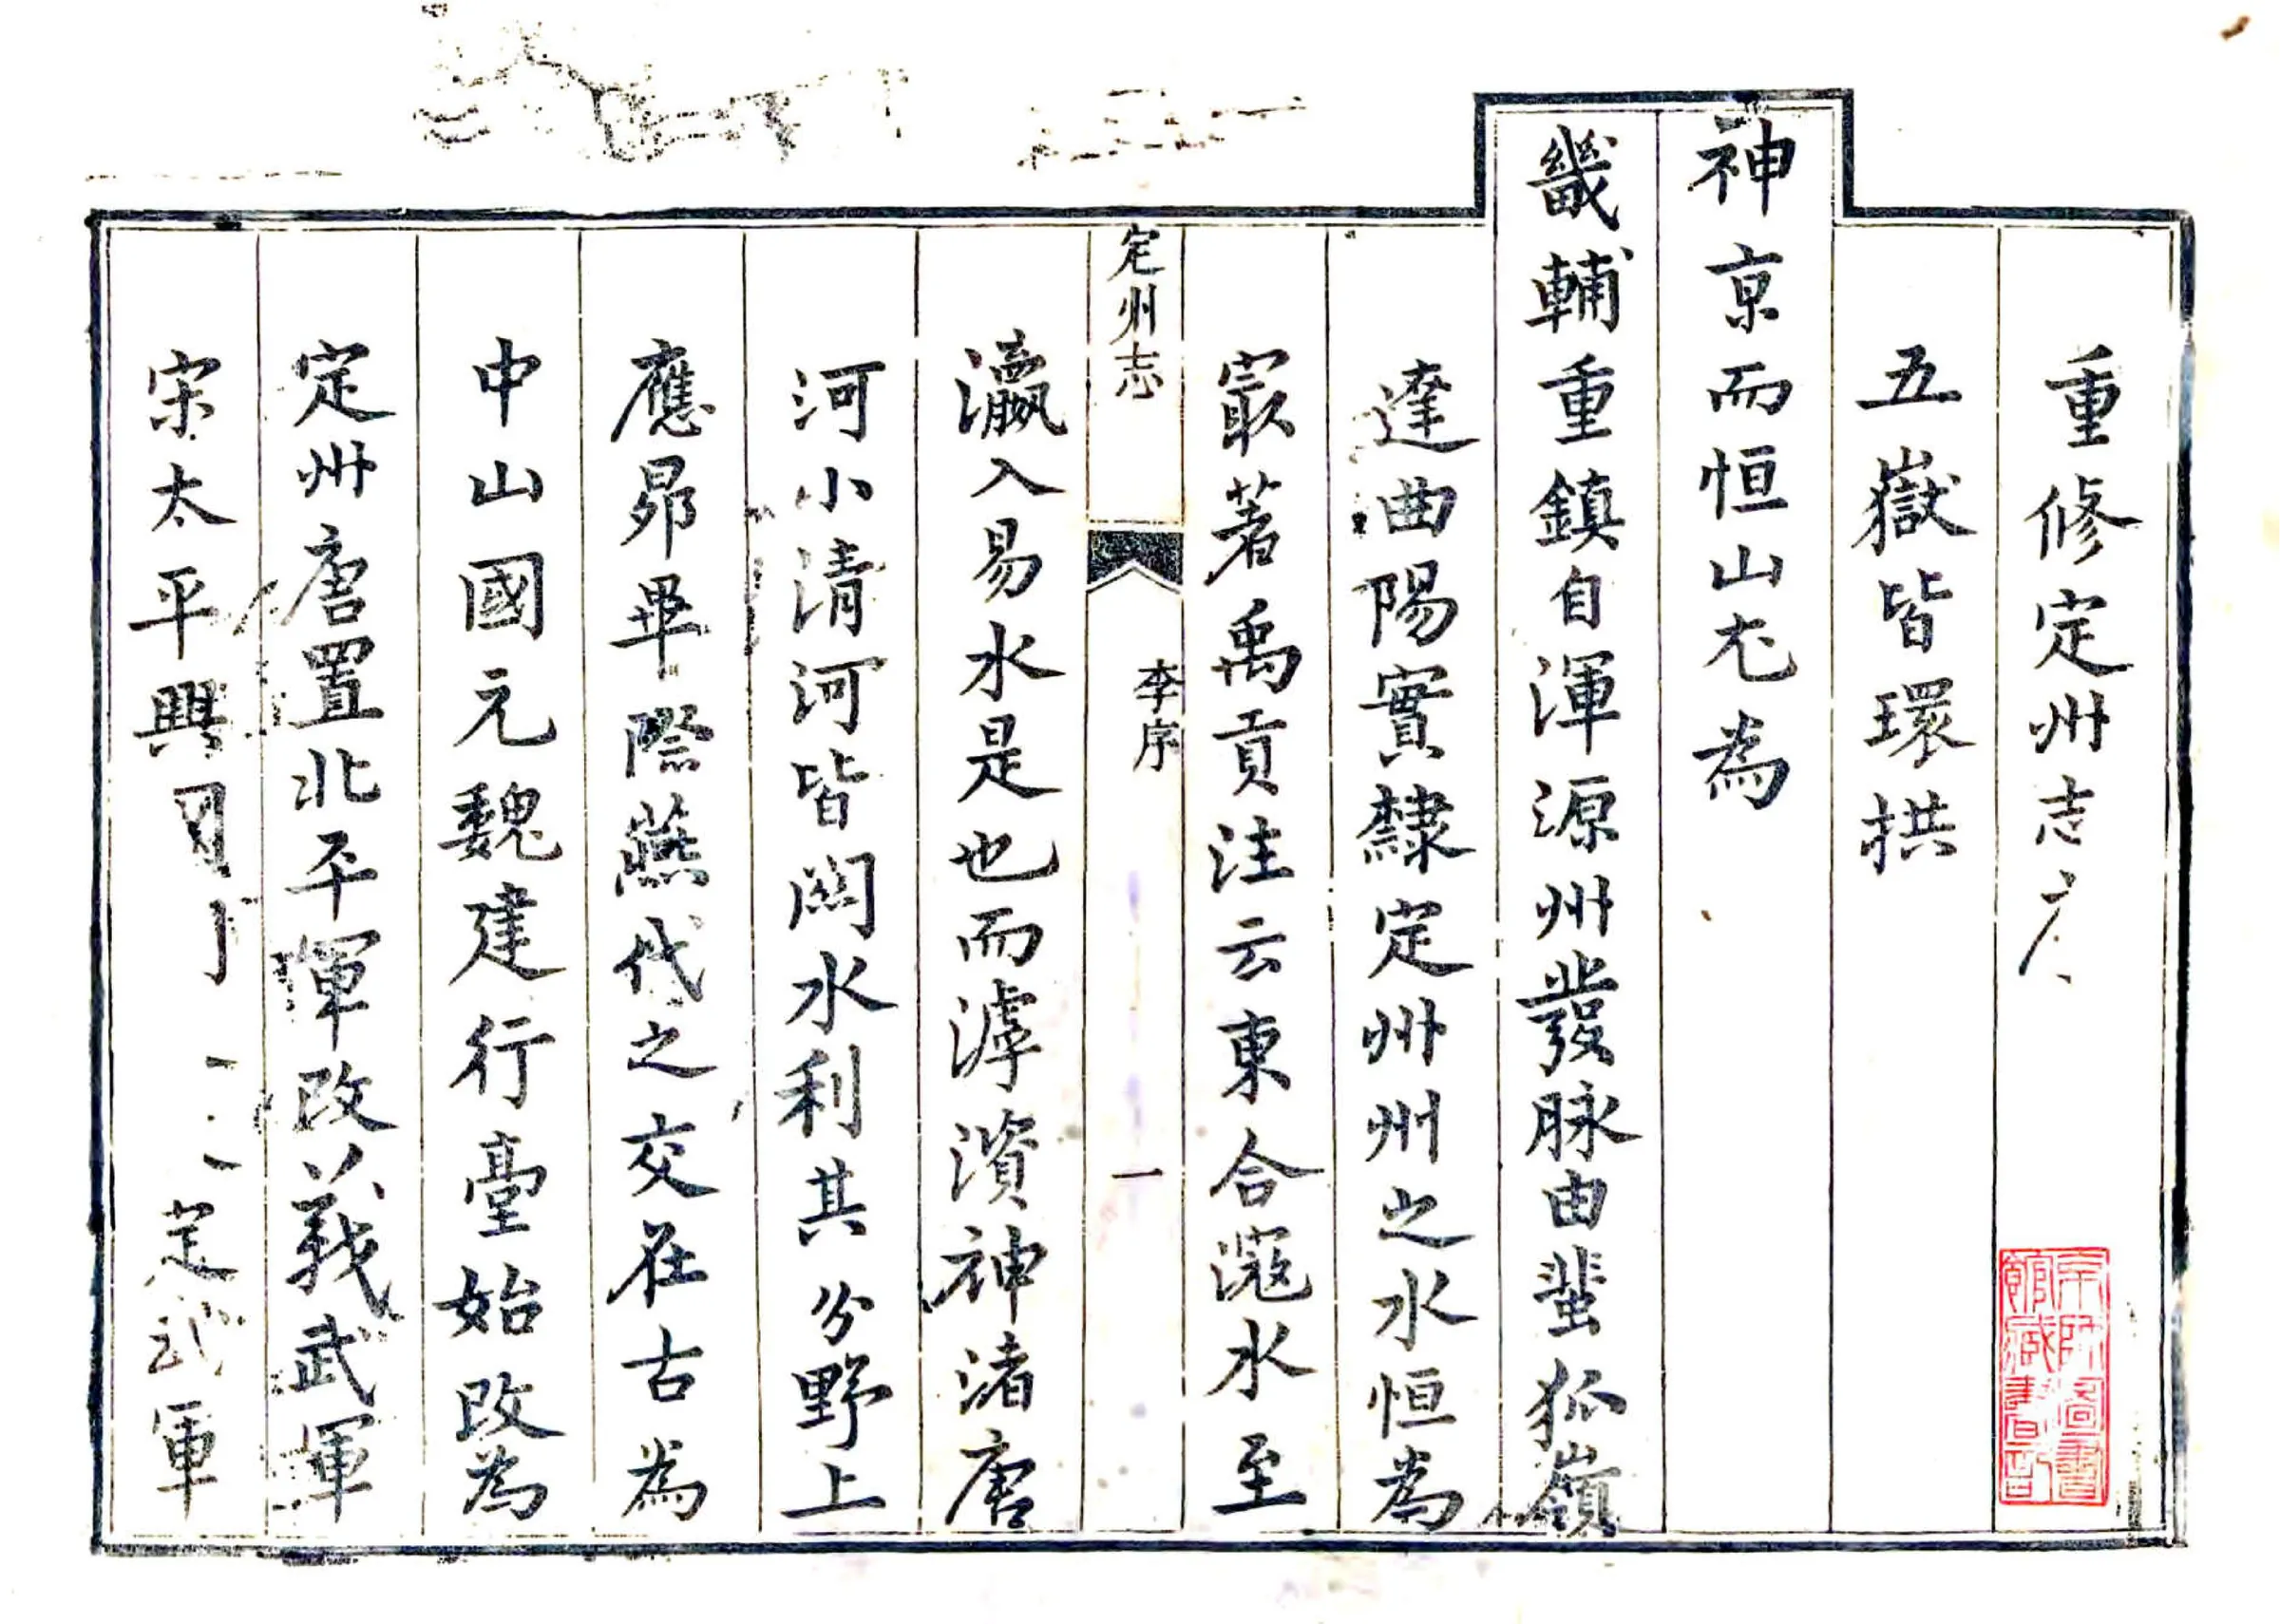 重修定州志序
五嶽皆環拱
神京而恒山尤為
畿輔重鎮自渾源州發脉由蜚狐嶺
達曲陽實隸定州州之水恒為
冣著禹貢注云東合滱水至
定州志
李序
一
瀛入易水是也而滹濱神渚唐
河小清河皆關水利其分野上
應昴畢際燕代之交在古為
中山國元魏建行臺始改為
定州唐置北平軍改義武軍
宋太平興國 定武軍